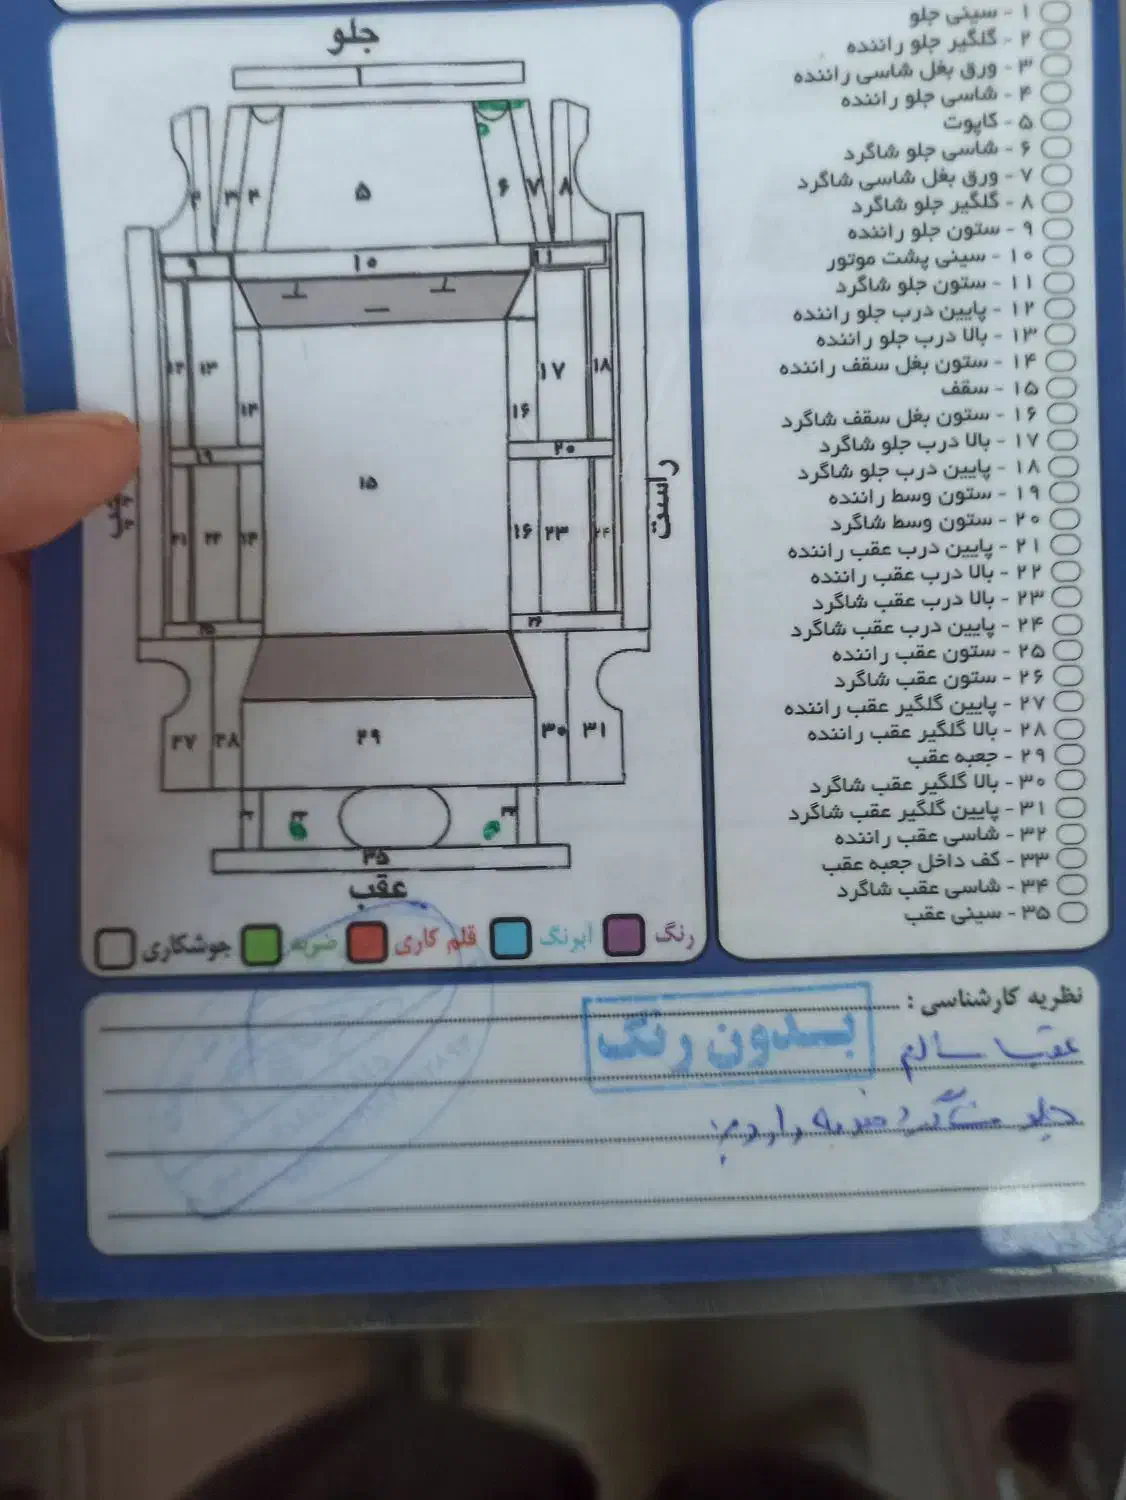 جلو
۱
۲
۳
۴
۵
۶
۷
۸
۹
۱۰
۱۱
۱۲
۱۳
۱۴
۱۷
۱۸
۱۶
۱۹
۲۰
۱۵
راست
۲۱
۲۲
۱۴
۱۶
۲۳
۲۴
۲۵
۲۶
۲۷
۲۸
۲۹
۳۰
۳۱
۳۵
عقب
رنگ
آبرنگ
قلم کاری
ضربه
جوشکاری
۱ - سینی جلو
۲ - گلگیر جلو راننده
۳ - ورق بغل شاسی راننده
۴ - شاسی جلو راننده
۵ - کاپوت
۶ - شاسی جلو شاگرد
۷ - ورق بغل شاسی شاگرد
۸ - گلگیر جلو شاگرد
۹ - ستون جلو راننده
۱۰ - سینی پشت موتور
۱۱ - ستون جلو شاگرد
۱۲ - پایین درب جلو راننده
۱۳ - بالا درب جلو راننده
۱۴ - ستون بغل سقف راننده
۱۵ - سقف
۱۶ - ستون بغل سقف شاگرد
۱۷ - بالا درب جلو شاگرد
۱۸ - پایین درب جلو شاگرد
۱۹ - ستون وسط راننده
۲۰ - ستون وسط شاگرد
۲۱ - پایین درب عقب راننده
۲۲ - بالا درب عقب راننده
۲۳ - بالا درب عقب شاگرد
۲۴ - پایین درب عقب شاگرد
۲۵ - ستون عقب راننده
۲۶ - ستون عقب شاگرد
۲۷ - پایین گلگیر عقب راننده
۲۸ - بالا گلگیر عقب راننده
۲۹ - جعبه عقب
۳۰ - بالا گلگیر عقب شاگرد
۳۱ - پایین گلگیر عقب شاگرد
۳۲ - شاسی عقب راننده
۳۳ - کف داخل جعبه عقب
۳۴ - شاسی عقب شاگرد
۳۵ - سینی عقب
نظریه کارشناسی :
بدون رنگ
عقب سالم
جلو شاگرد ضربه دارد